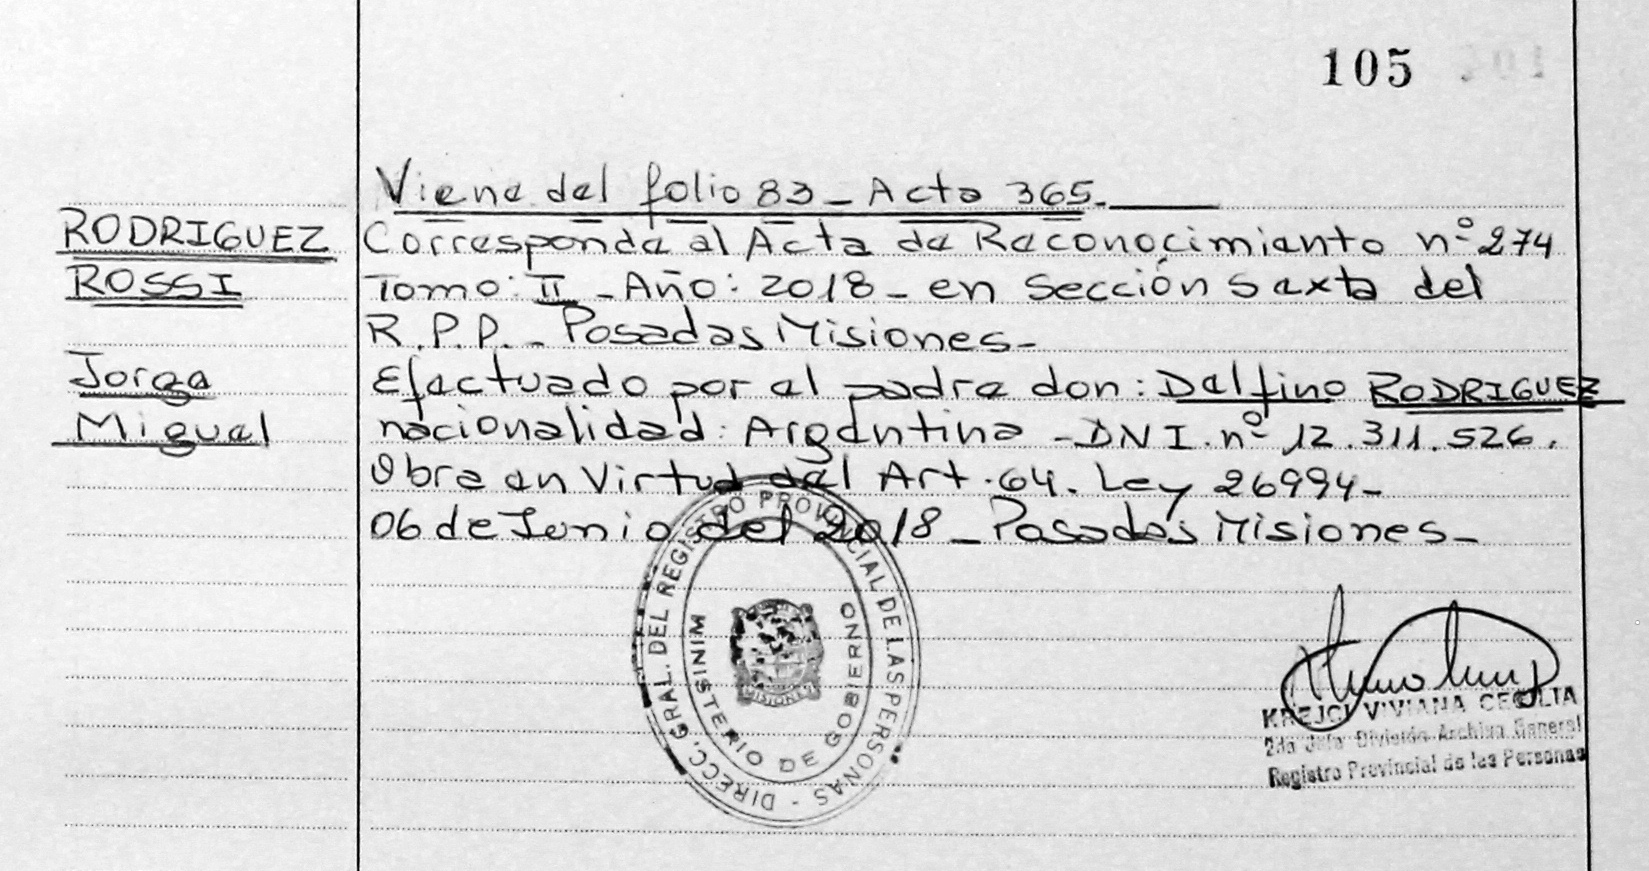 105
Viene del folio 83 - Acta 365.
RODRIGUEZ
ROSSI
Jorge
Miguel
Corresponde al Acta de Reconocimiento nº 274
Tomo: II - Año: 2018 - en Sección Sexta del
R.P.P. - Posadas Misiones -
Efectuado por el padre don: Delfino RODRIGUEZ
nacionalidad: Argentina - DNI. nº 12.311.526.
Obra en Virtud del Art. 64. Ley 26994 -
06 de Junio del 2018 - Posadas Misiones -
DIRECC. GRAL. DEL REGISTRO PROVINCIAL DE LAS PERSONAS -
MINISTERIO DE GOBIERNO
MISIONES
KREJCI VIVIANA CECILIA
2da Jefa División Archivo General
Registro Provincial de las Personas